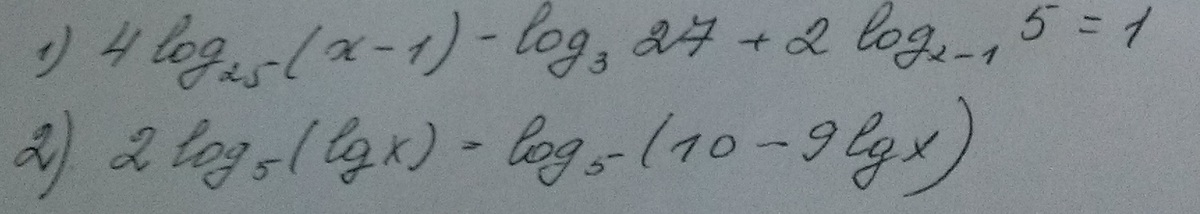 1) 4 log₂₅(x-1) - log₃ 27 + 2 logₓ₋₁ 5 = 1
2) 2 log₅(lgx) = log₅(10 - 9lgx)